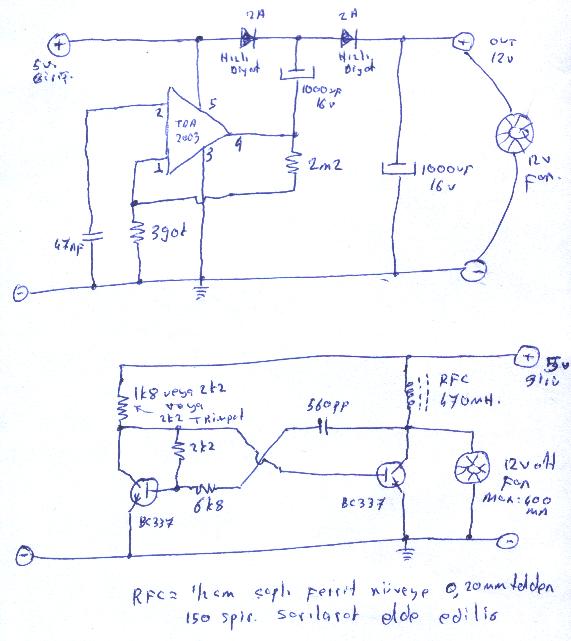 2A
2A
+
5v.
Giriş.
Hızlı
Diyot
Hızlı
Diyot
+
OUT
12v
1000uF
16v
2
5
TDA
2003
4
3
1
2m2
1000uF
16v
12v
Fan.
47nF
390k
-
-
+
5v
Giriş
1k8 veya 2k2
veya
2k2 Trimpot
560pF
RFC
470mH.
2k2
6k8
BC337
BC337
12volt
Fan
Max:400
mA
-
-
RFC= 1kam çaplı ferrit nüveye 0,20mm telden
150 spir. Sarılarak elde edilir